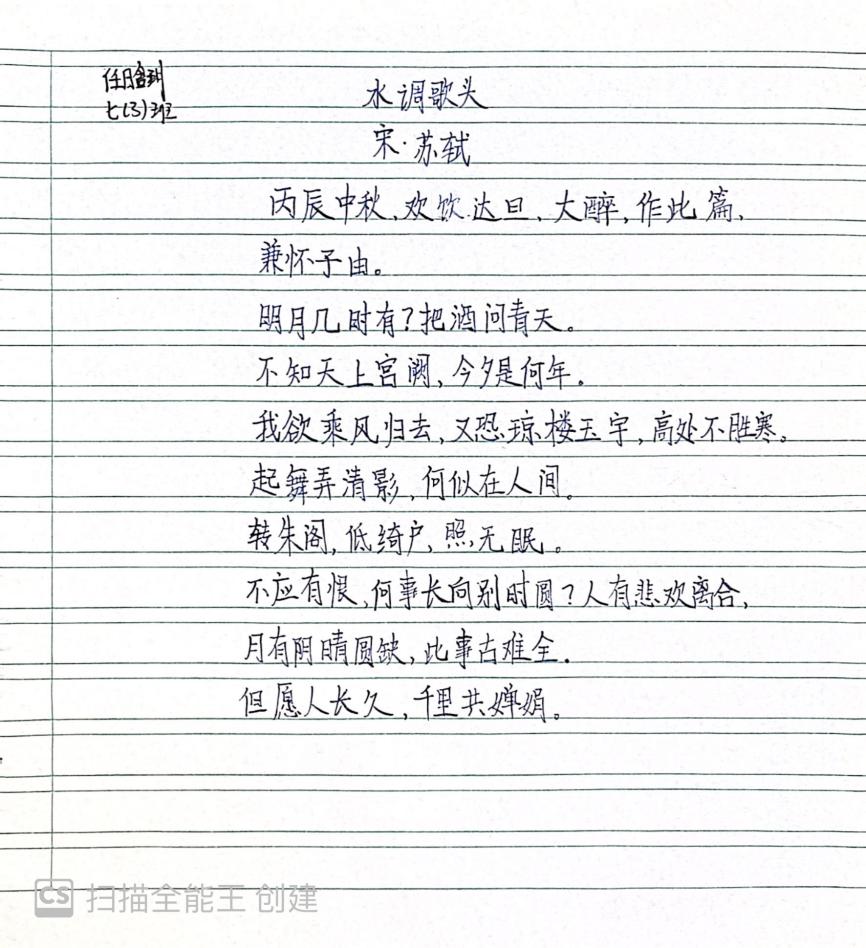 七(3)班
水调歌头
宋·苏轼
丙辰中秋,欢饮达旦,大醉,作此篇,
兼怀子由。
明月几时有?把酒问青天。
不知天上宫阙,今夕是何年。
我欲乘风归去,又恐琼楼玉宇,高处不胜寒。
起舞弄清影,何似在人间。
转朱阁,低绮户,照无眠。
不应有恨,何事长向别时圆?人有悲欢离合,
月有阴晴圆缺,此事古难全.
但愿人长久,千里共婵娟。
CS 扫描全能王 创建